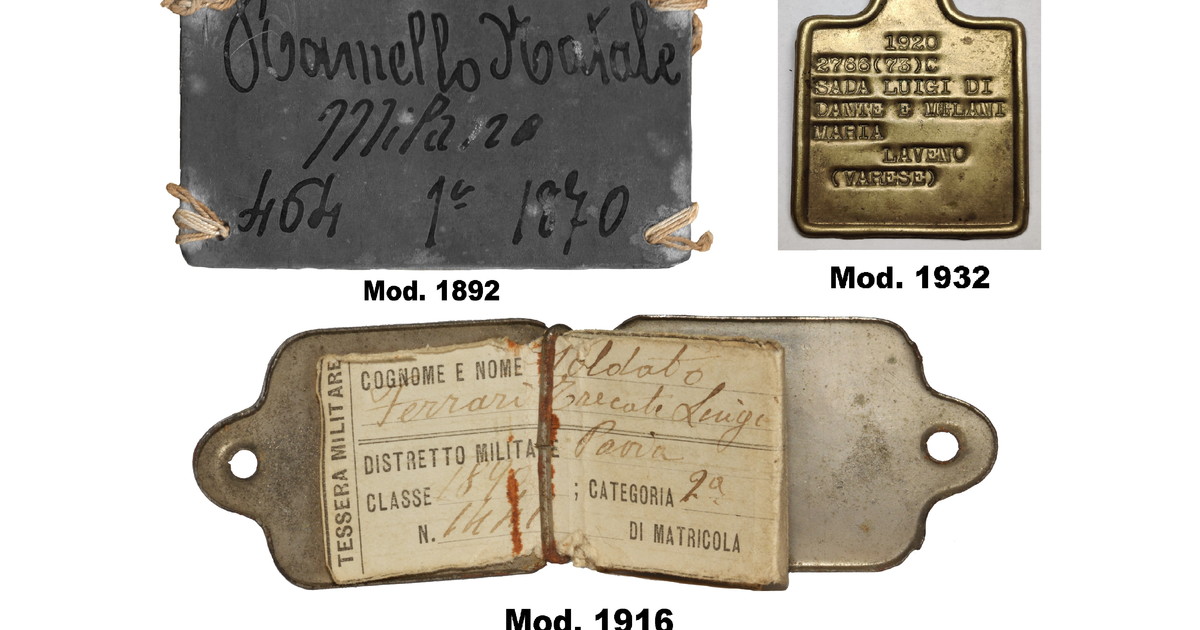 Ramello Natale
Milano
464 1ª 1870
Mod. 1892
1920
2788(73)C
SADA LUIGI DI
DANTE E MELANI
MARIA
LAVENO
(VARESE)
Mod. 1932
TESSERA MILITARE
COGNOME E NOME Soldato
Ferrari Trecate Luigi
DISTRETTO MILITARE Pavia
CLASSE ; CATEGORIA 2ª
N. DI MATRICOLA
Mod. 1916